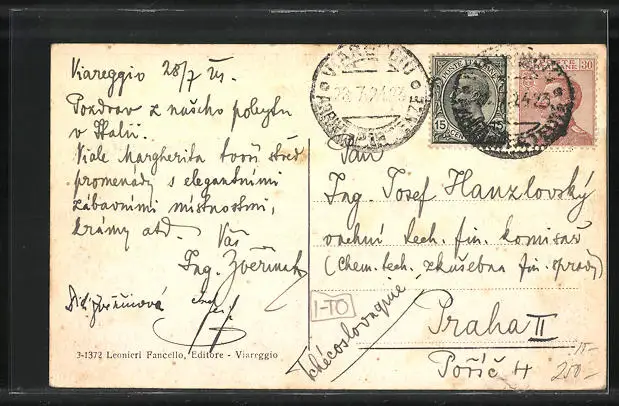 Viareggio 28/7
Pozdrav z našeho pobytu
v Italii.
Viale Margherita tvoří střed
promenády s elegantními
zábavními místnostmi,
krámy atd. Váš
Ing. Zvěřinek
VIAREGGIO
28.7.24
POSTE ITALIANE
15
30
Pan
Ing. Josef Hanzlovský
vrchní tech. fin. komisař
(Chem. tech. zkušebna fin. správy)
Praha II
Poříč 4
Tchécoslovaquie
I-TO
15-
250-
3-1372 Leonieri Fancello, Editore - Viareggio